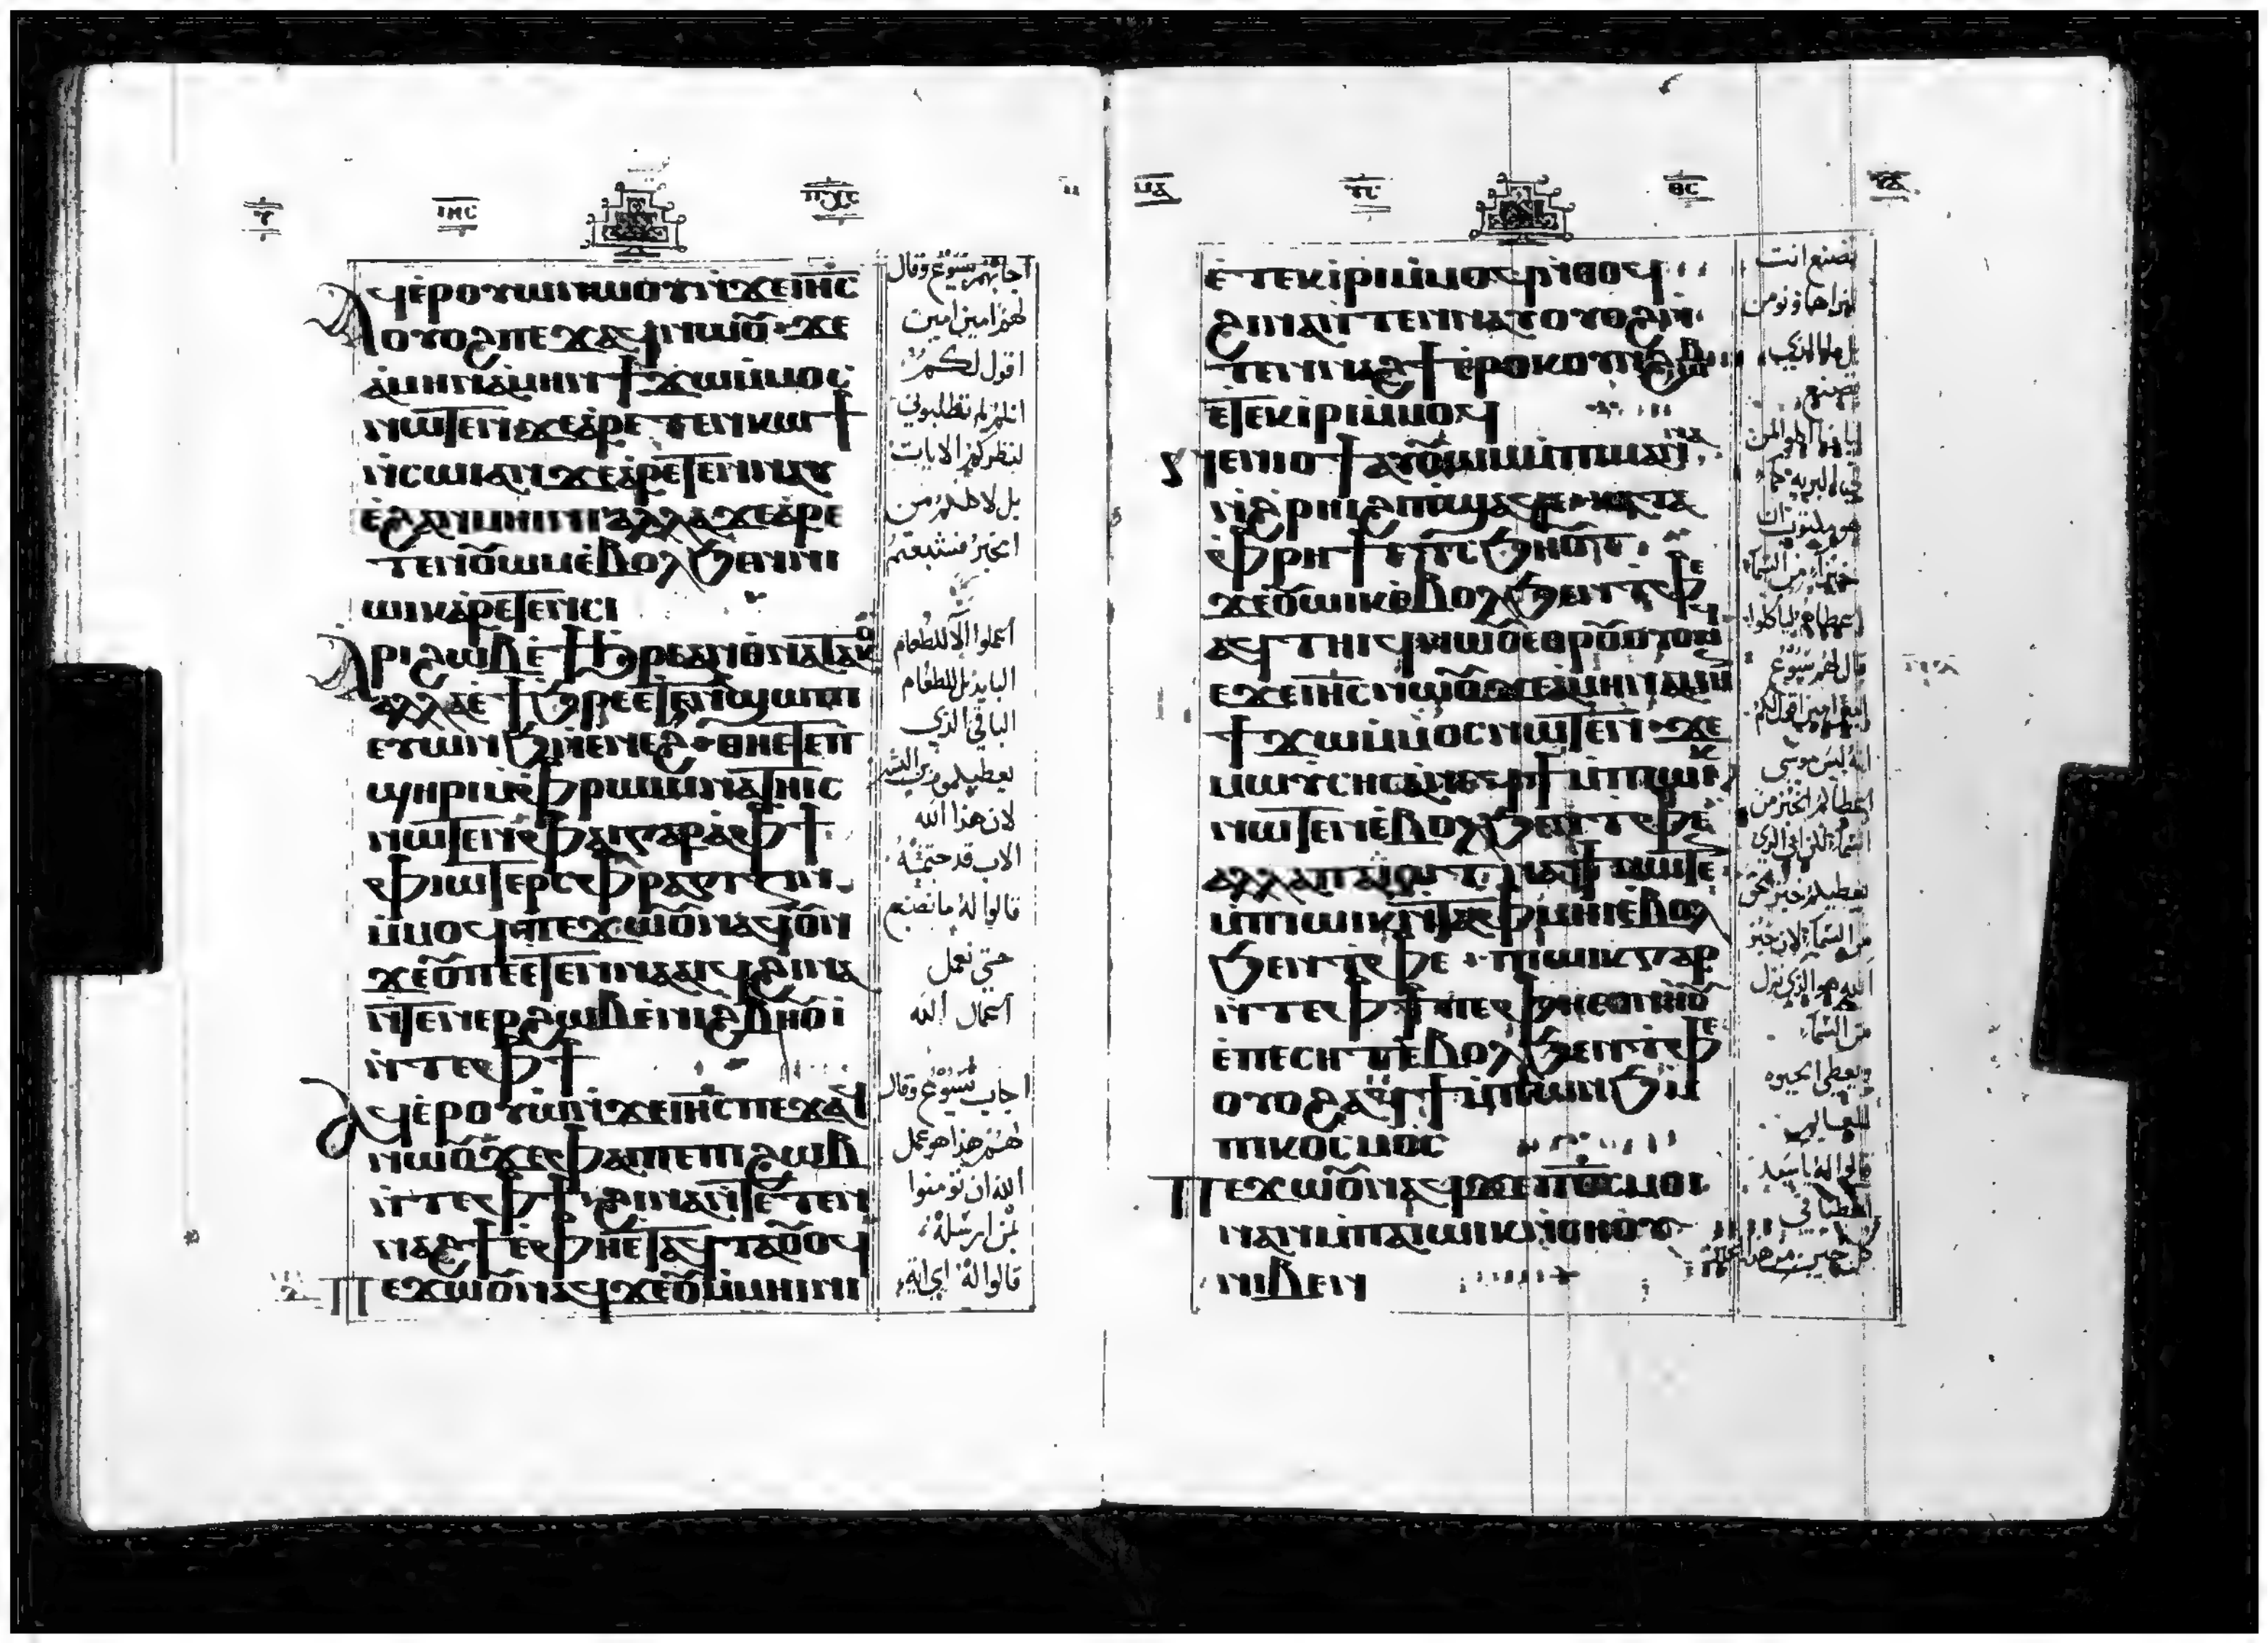 ⲓⲏⲥ
ⲡⲭⲥ
ⲁϥⲉⲣⲟⲩⲱⲛⲱⲟⲩⲛϫⲉⲓⲏⲥ
ⲟⲩⲟϩⲡⲉϫⲁϥⲛⲱⲟⲩ ϫⲉ
ⲁⲙⲏⲛⲁⲙⲏⲛϯϫⲱⲙⲙⲟⲥ
ⲛⲱⲧⲉⲛϫⲉⲁⲣⲉⲧⲉⲛⲕⲱϯ
ⲛⲥⲱⲓⲁⲛϫⲉⲁⲣⲉⲧⲉⲛⲛⲁⲩ
ⲉϩⲁⲛⲙⲏⲓⲛⲓ ⲁⲗⲗⲁϫⲉⲁⲣⲉ
ⲧⲉⲛⲟⲩⲱⲙⲉⲃⲟⲗϧⲉⲛⲛⲓ
ⲱⲓⲕⲁⲣⲉⲧⲉⲛⲥⲓ
ⲁⲣⲓϩⲱⲃⲉϯϧⲣⲉⲁⲛⲑⲛⲁⲧⲁⲕⲟ
ⲁⲗⲗⲁⲉϯϧⲣⲉⲉⲧⲉⲛϣⲱⲡⲓ
ⲉⲩⲱⲛϧⲛⲉⲛⲉϩ ⲑⲏⲉⲧⲉⲡ
ϣⲏⲣⲓⲙⲫⲣⲱⲙⲓⲛⲁⲧⲏⲓⲥ
ⲛⲱⲧⲉⲛⲫⲁⲓⲅⲁⲣⲁⲫϯ
ⲫⲓⲱⲧⲉⲣⲥⲫⲣⲁⲅⲓⲍⲓⲛ
ⲙⲙⲟϥⲡⲉϫⲱⲟⲩⲛⲁϥⲟⲩⲛ
ϫⲉⲟⲩⲡⲉⲉⲧⲉⲛⲛⲁⲁⲓϥϩⲓⲛⲁ
ⲛⲧⲉⲛⲉⲣϩⲱⲃⲉⲛⲓϩⲃⲏⲟⲩⲓ
ⲛⲧⲉⲫϯ
ⲁϥⲉⲣⲟⲩⲱⲛϫⲉⲓⲏⲥⲡⲉϫⲁϥ
ⲛⲱⲟⲩϫⲉⲫⲁⲓⲡⲉⲡϩⲱⲃ
ⲛⲧⲉⲫϯϩⲓⲛⲁⲛⲧⲉⲧⲉⲛ
ⲛⲁϩϯⲉⲫⲏⲉⲧⲁϥⲧⲁⲟⲩⲟϥ
ⲡⲉϫⲱⲟⲩⲛⲁϥϫⲉⲟⲩⲙⲙⲏⲓⲛⲓ
اجابهم يسوع وقال
لهم امين امين
اقول لكم
انكم لم تطلبوني
لنظركم الايات
بل لاكلكم من
الخبز فشبعتم
اعملوا لا للطعام
البايد بل للطعام
الباقي الذي
يعطيكموه بن البشر
لان هذا الله
الاب قد ختمه
قالوا له ما نصنع
حتى نعمل
اعمال الله
اجاب يسوع وقال
لهم هذا هو عمل
الله ان تومنوا
بمن ارسله
قالوا له اي اية
ⲩⲥ
ⲑⲥ
ⲉⲧⲉⲕⲓⲣⲓⲙⲙⲟϥⲛⲑⲟⲕ
ϩⲓⲛⲁⲛⲧⲉⲛⲛⲁⲩⲟⲩⲟϩⲛ
ⲧⲉⲛⲛⲁϩϯⲉⲣⲟⲕⲟⲩⲡϩⲱⲃ
ⲉⲧⲉⲕⲓⲣⲓⲙⲙⲟϥ
ⲛⲉⲛⲓⲟϯⲁⲩⲟⲩⲱⲙⲙⲡⲓⲙⲁⲛⲛⲁ
ⲛϩⲣⲏⲓϩⲓⲡϣⲁϥⲉ ⲕⲁⲧⲁ
ⲫⲣⲏϯⲉⲧⲥϧⲏⲟⲩⲧ
ϫⲉⲟⲩⲱⲓⲕⲉⲃⲟⲗϧⲉⲛⲧⲫⲉ
ⲁϥⲧⲏⲓϥⲛⲱⲟⲩⲉⲑⲣⲟⲩⲟⲩⲟⲙϥ
ⲉϫⲉⲓⲏⲥⲛⲱⲟⲩϫⲉⲁⲙⲏⲛⲁⲙⲏⲛ
ϯϫⲱⲙⲙⲟⲥⲛⲱⲧⲉⲛ ϫⲉ
ⲙⲱⲩⲥⲏⲥⲁⲛⲁϥϯⲙⲡⲱⲓⲕ
ⲛⲱⲧⲉⲛⲉⲃⲟⲗϧⲉⲛⲧⲫⲉ
ⲁⲗⲗⲁⲡⲁⲓⲱⲧⲛⲁϯⲛⲱⲧⲉⲛ
ⲙⲡⲱⲓⲕⲛⲧⲁⲫⲙⲏⲓⲉⲃⲟⲗ
ϧⲉⲛⲧⲫⲉ ⲡⲓⲱⲓⲕⲅⲁⲣ
ⲛⲧⲉⲫϯⲡⲉⲫⲏⲉⲑⲛⲏⲟⲩ
ⲉⲡⲉⲥⲏⲧⲉⲃⲟⲗϧⲉⲛⲧⲫⲉ
ⲟⲩⲟϩⲁϥϯⲙⲡⲱⲛϧⲙ
ⲡⲓⲕⲟⲥⲙⲟⲥ
ⲡⲉϫⲱⲟⲩⲛⲁϥϫⲉⲡⲟⲥⲙⲟⲓ
ⲛⲁⲛⲙⲡⲁⲓⲱⲓⲕⲛⲥⲏⲟⲩ
ⲛⲓⲃⲉⲛ
تصنع انت
لنراها ونومن
تصنع
قال لهم يسوع
امين امين اقول لكم
انه ليس موسى
اعطاكم الخبز من
من السماء لان خبز
الله هو الذي نزل
من السماء
ويعطي الحيوه
للعالم
قالوا له يا سيد
اعطنا في